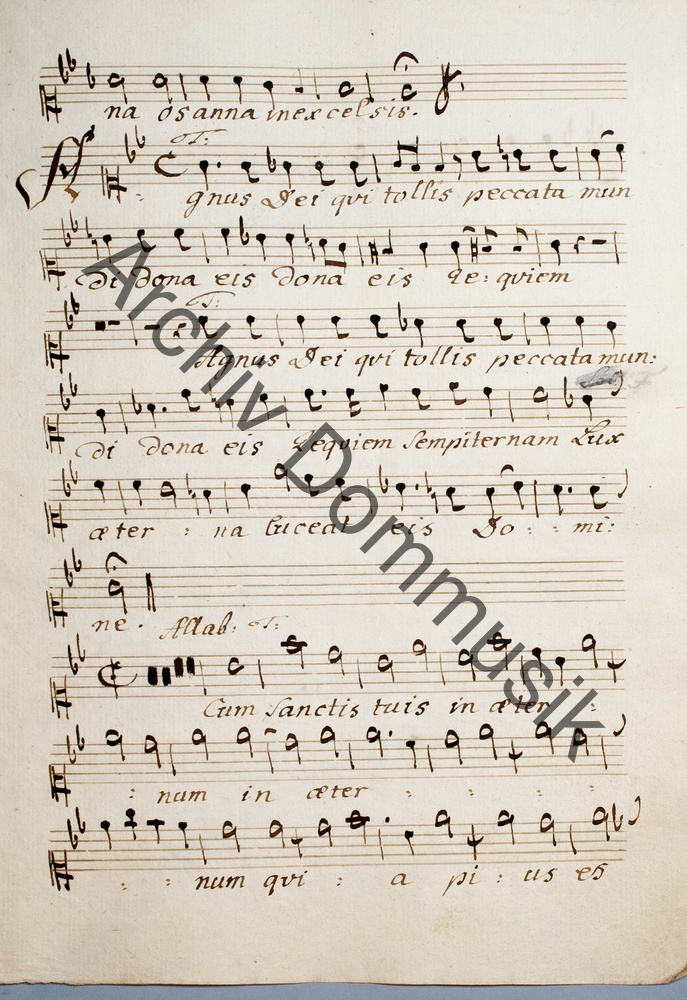 na osanna in excelsis.
T:
Agnus Dei qui tollis peccata mun
di dona eis dona eis re: quiem
T:
Agnus Dei qui tollis peccata mun:
di dona eis Requiem Sempiternam Lux
æter : na luceat eis Do : : mi:
ne. Allab: T:
Cum Sanctis tuis in æter :
: num in æter : : : :
: : num qui : a pi : us es
Archiv Dommusik